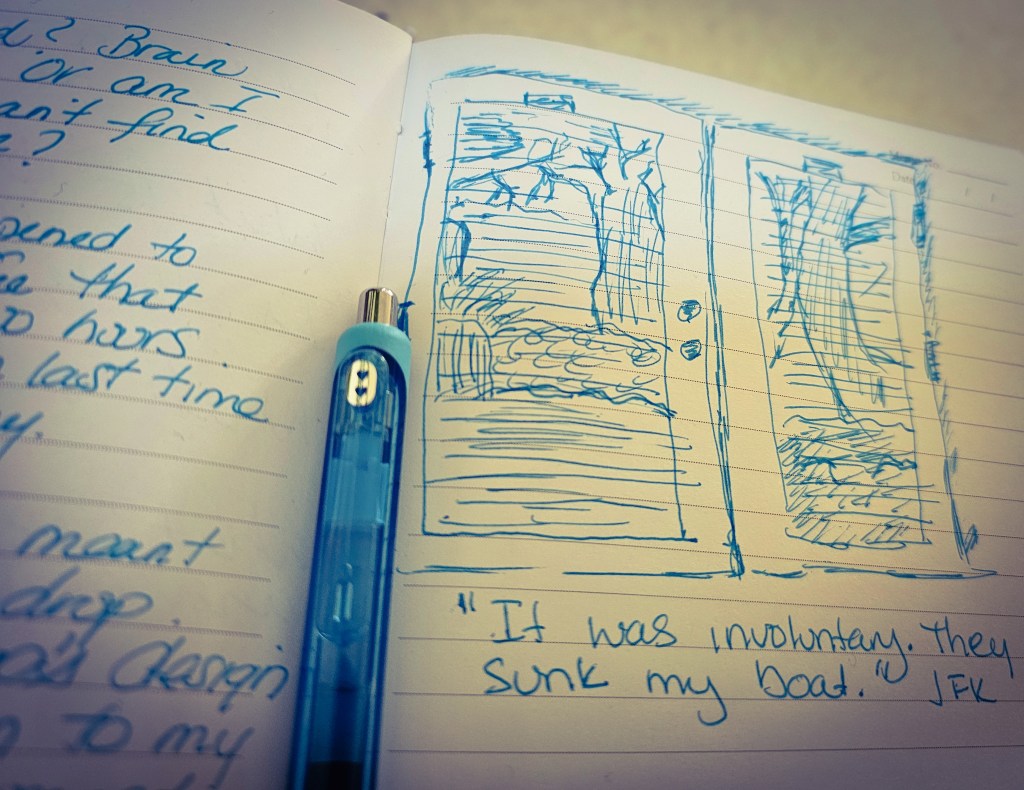 d? Brain
or am I
an't find
?
pened to
that
hours.
last time
y.
meant
drop.
design
to my
Date
"It was involuntary. They
sunk my boat." JFK